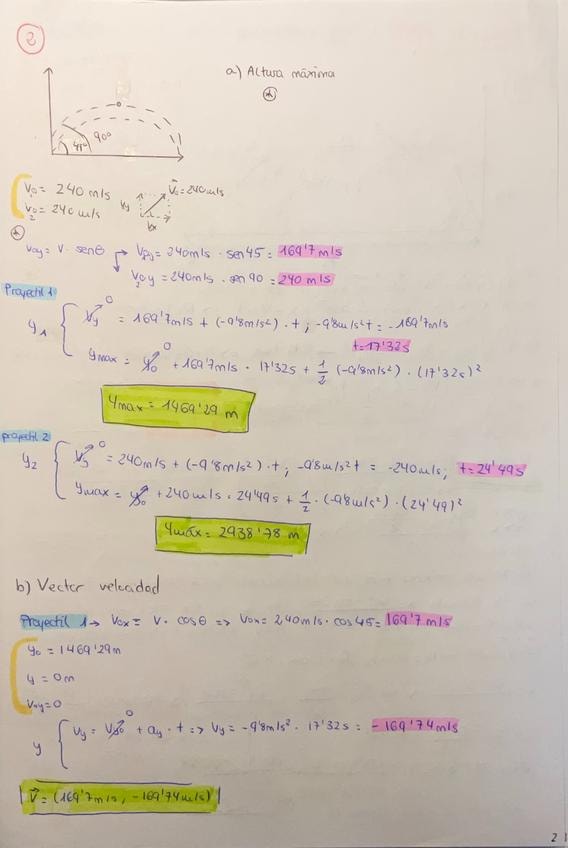 2
a) Altura máxima
*
90°
45°
V0₁ = 240 m/s
V0₂ = 240 m/s
Vy
V⃗0 = 240 m/s
Vx
*
V0y = V · senθ
V0₁y = 240m/s · sen 45 = 169'7 m/s
V0₂y = 240m/s · sen 90 = 240 m/s
Proyectil 1
y₁
Vy 0 = 169'7m/s + (-9'8m/s²) · t ; -9'8m/s² t = -169'7m/s
t = 17'32s
ymax = y0 0 + 169'7m/s · 17'32s + 1/2 (-9'8m/s²) · (17'32s)²
Ymax = 1469'29 m
Proyectil 2
y₂
Vy 0 = 240m/s + (-9'8m/s²) · t ; -9'8m/s² t = -240m/s; t = 24'49s
ymax = y0 + 240m/s · 24'49s + 1/2 · (-9'8m/s²) · (24'49)²
Ymáx = 2938'78 m
b) Vector velocidad
Proyectil 1 → V0x = V · cosθ => V0x = 240m/s · cos 45 = 169'7 m/s
y0 = 1469'29m
y = 0m
V0y = 0
y
Vy = Vy0 0 + ay · t => Vy = -9'8m/s² · 17'32s = -169'74m/s
V⃗ = (169'7m/s, -169'74m/s)
2